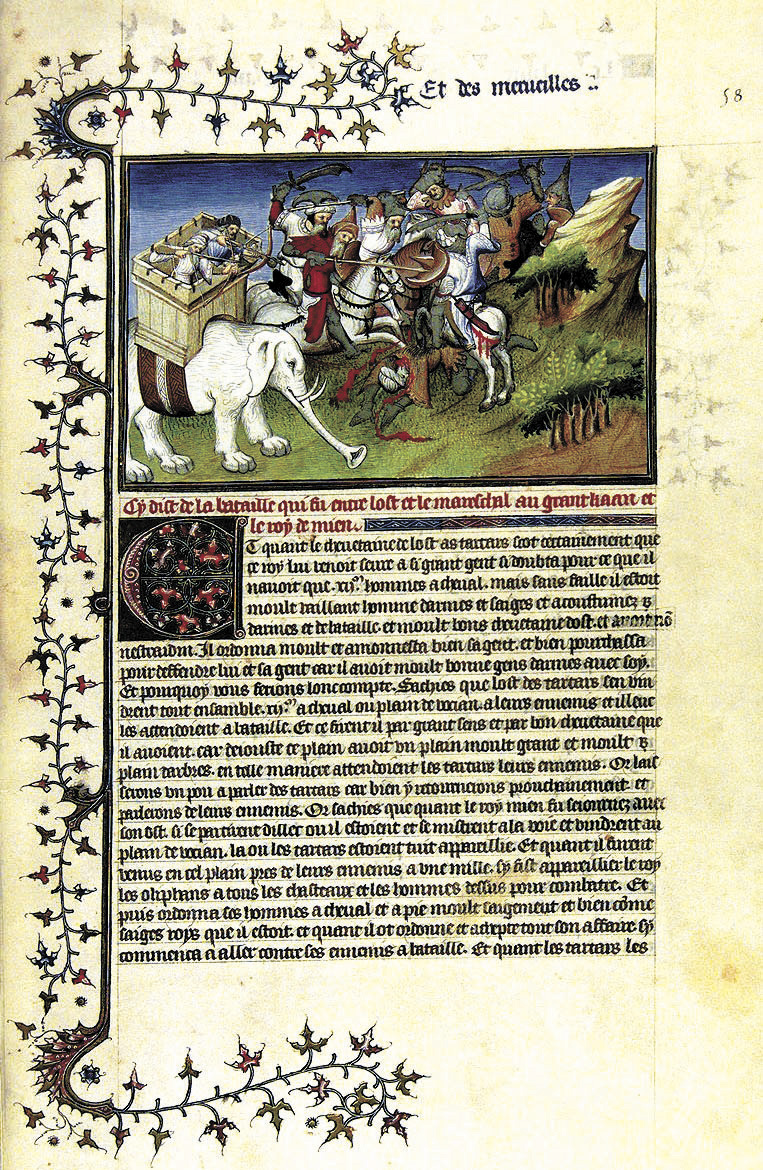 Et des merueilles
58
Cy dist de la bataille qui fu entre lost et le mareschal au grant kaan et
le roy de mien.
Et quant le cheuetaine de lost as tartars scot certainement que
ce roy lui venoit seure a si grant gent si doubta pour ce que il
nauoit que .xij.m hommes a cheual. mais sans faille il estoit
moult vaillant homme darmes et saiges et acoustumez
darmes et de bataille et moult bons cheuetaine dost. et auoit nō
nestraidin. Il ordonna moult et amonnesta bien sa gent. et bien pourchassa
pour deffendre lui et sa gent car il auoit moult bonne gens darmes auec soy.
Et pourquoy vous ferons lonc compte. Sachies que lost des tartars sen vin
drent tout ensamble .xij.m a cheual ou plain de vocian. a leurs ennemis et illeuc
les attendoient a bataille. Et ce firent il par grant sens et par bon cheuetaine que
il auoient. car deiouste ce plain auoit vn plain moult grant et moult
plain darbres. en telle maniere attendoient les tartars leurs ennemis. Or lais
serons vn pou a parler des tartars car bien y retournerons prouchainement. et
parlerons de leurs ennemis. Or sachies que quant le roy mien fu seiournez auec
son ost. si se partirent dillec ou il estoient et se mistrent a la voie et vindrent au
plain de vocian. la ou les tartars estoient tuit appareillie. Et quant il furent
venus en cel plain pres de leurs ennemis a vne mille. sy fist appareillier le roy
les oliphans a tous les chasteaux et les hommes dessus pour combatre. Et
puis ordonna ses hommes a cheual et a pie moult saigement et bien cōme
saiges roys que il estoit. et quant il ot ordonne et tout son affaire. sy
commenca a aller contre ses ennemis a bataille. Et quant les tartars les